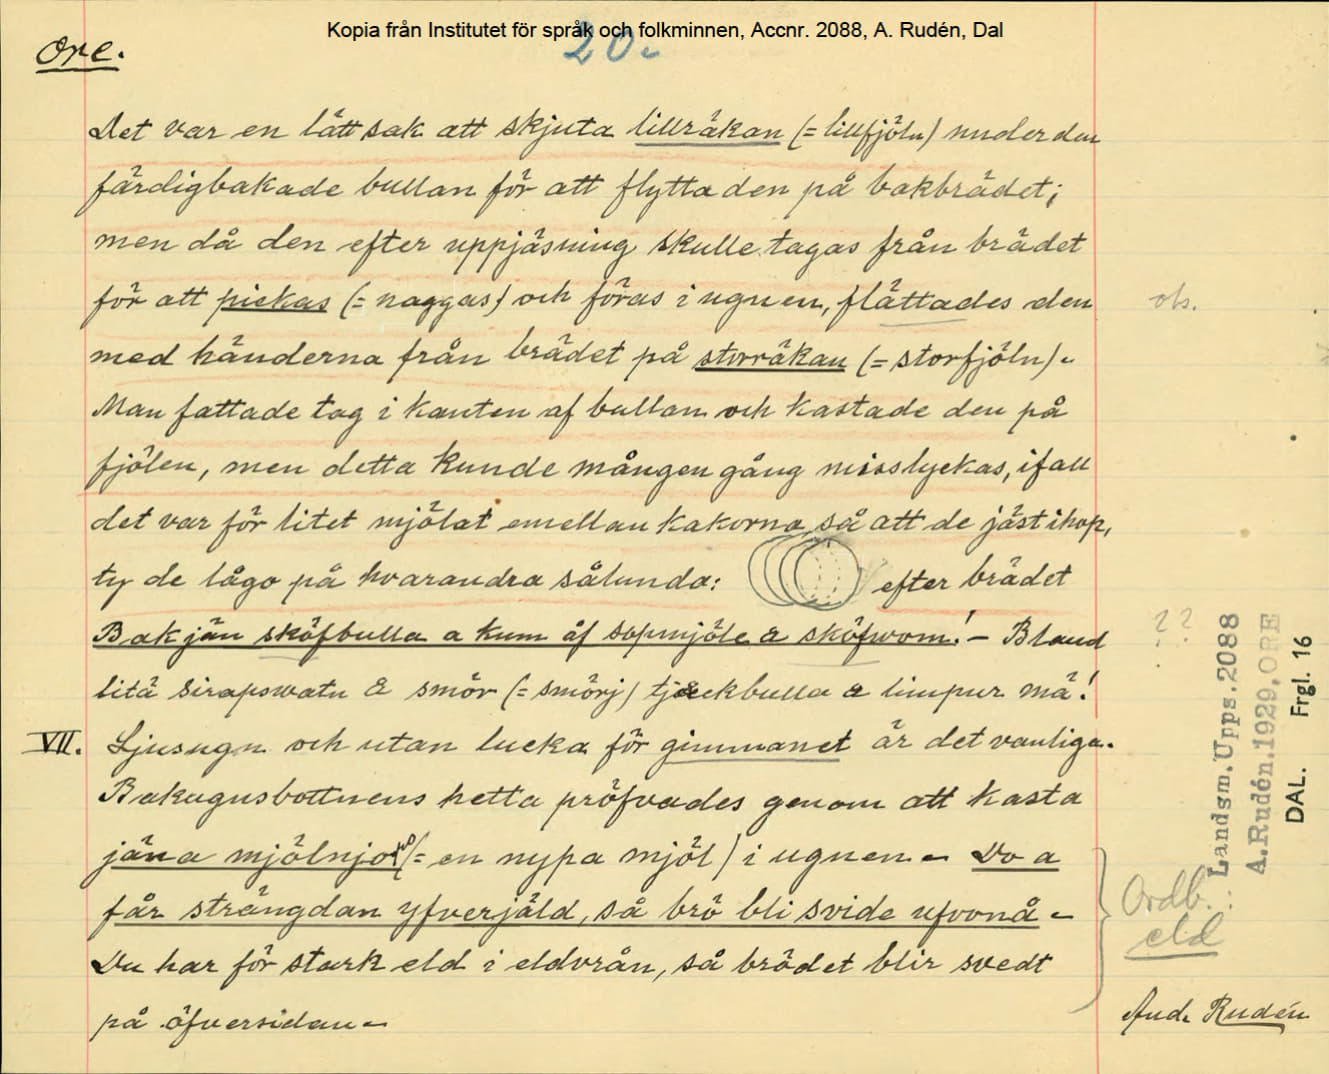 Kopia från Institutet för språk och folkminnen, Accnr. 2088, A. Rudén, Dal
Ore.
20.
Det var en lätt sak att skjuta lillräkan (= lillfjöln) under den
färdigbakade bullan för att flytta den på bakbrädet;
men då den efter uppjäsning skulle tagas från brädet
för att pickas (= naggas) och föras i ugnen, flättades den
obs.
med händerna från brädet på storräkan (= storfjöln).
Man fattade tag i kanten af bullan och kastade den på
fjölen, men detta kunde mången gång misslyckas, ifall
det var för litet mjölat emellan kakorna, så att de jäst ihop,
ty de lågo på hvarandra sålunda: efter brädet
Bakjän sköfbulla a kum åf sopmjöle å sköfwom! – Bland
??
litä sirapswatn & smör (= smörj) tjäckbulla å limpur mä!
VII. Ljusugn och utan lucka för gimmanet är det vanliga.
Bakugnsbottnens hetta pröfvades genom att kasta
jäna mjölnjo (= en nypa mjöl) i ugnen. – Do a
får strängdan yfverjäld, så brö bli svide ufvonå –
Du har för stark eld i eldvrån, så brödet blir svedt
på öfversidan –
Ordb.
eld
And. Rudén
Landsm. Upps. 2088
A. Rudén. 1929. ORE
DAL. Frgl. 16